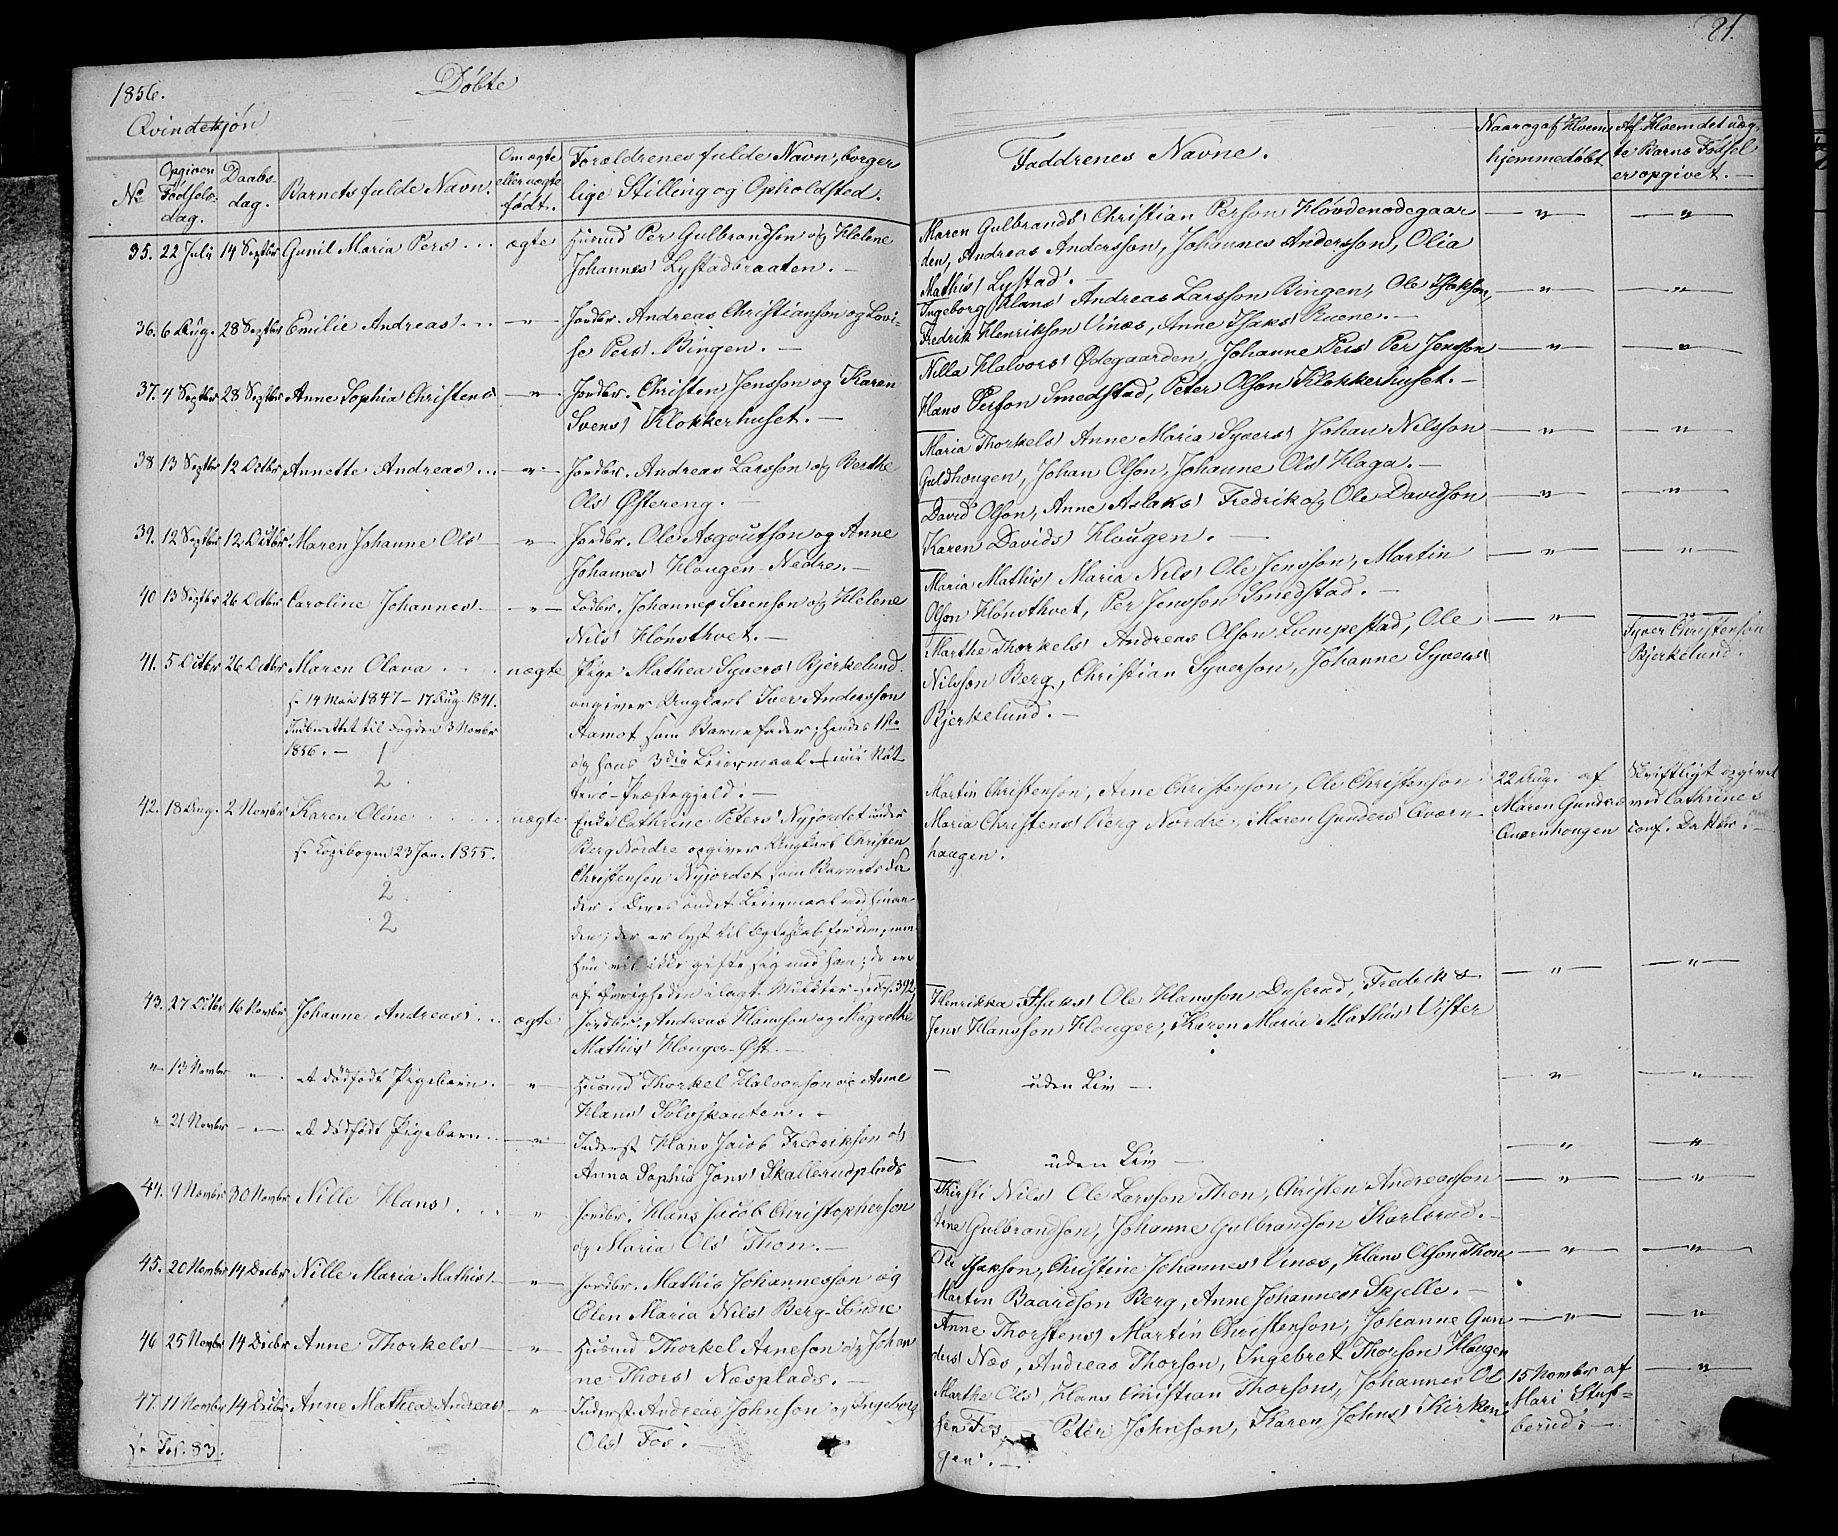 1856.
Døbte
Qvindekjøn
81.
No
Opgiven Fødselsdag.
Daabsdag.
Barnets fulde Navn.
Om ægte eller uægte født.
Forældrenes fulde Navn, borgerlige Stilling og Opholdsted.
Faddrenes Navne.
Naar og af Hvem hjemmedøbt
Af Hvem det uægte Barns Fødsel er opgivet. —
35. 22 Juli 14 Septbr Gunil Maria Pers ... ægte Husmd Per Gulbrandson og Helene
Johannes' Lystadbraaten. —
Maren Gulbrands' Christian Person Hovdenødegaar
den, Andreas Andersson, Johannes Andersson, Olia
Mathis' Lystad.
36. 6 Aug. 28 Septbr Emilie Andreas' ... — " — Jordbr. Andreas Christianson og Lovi-
se Pers' Bingen. —
Ingeborg Hans' Andreas Larsson Bingen, Ole Isakson,
Fredrik Henrikson Vinæs, Anne Isaks' Ruene. —
37. 4 Septbr 28 Septbr Anne Sophia Christens — " — Jordbr. Christen Jensson og Karen
Svens' Klokkerhuset. —
Nilla Halvors' Ødegaarden, Johanne Pers' Per Jensson
Hans Person Smedstad, Peter Olson Klokkerhuset. —
38 13 Septbr 12 Octbr Annette Andreas' ... — " — Jordbr. Andreas Larsson og Berthe
Ols Østereng. —
Maria Thorkels' Anne Maria Syvers' Johan Nilsson
Guldhougen, Johan Olson, Johanne Ols' Haga. —
39. 12 Septbr 12 Octbr Maren Johanne Ols — " — Jordbr. Ole Aagoutson og Anne
Johannes' Hougen Nedre. —
David Olson, Anne Aslaks' Fredrik og Ole Davidson
Karen Davids' Hougen. —
40 13 Septbr 26 Octbr Caroline Johannes — " — Lodbr. Johannes Svenson og Helene
Nils' Hønsthvet. —
Maria Mathis' Maria Nils' Ole Jensson, Martin
Olson Hønsthvet, Per Jensson Smedstad. —
41. 5 Octbr 26 Octbr Maren Olava .... uægte Pige Mathea Syvers' Bjerkelund
angiver Ungkarl Iver Andersson
Aamot som Barnefader; hendes 1ste
og hans 3die Leiermaal
Præstegjeld. —
14 Mai 1847 — 17 Aug 1841.
Indberettet til Fogden 3 Novbr
1856. — 1
2
Marthe Thorkels' Andreas Olson Lempestad, Ole
Nilsson Berg, Christian Syverson, Johanne Syvers'
Bjerkelund. —
Syver Christenson
Bjerkelund.
42. 18 Aug. 2 Novbr Karen Oline ..... uægte Enke Cathrine Peters' Nyjordet under
Berg Nordre opgiver Ungkarl Christen
Christensen Nyjordet som Barnets Fa
der. Deres andet Leiermaal med hinan
den; der er lyst til Ægteskab for dem, men
hun vil ikke gifte sig med ham; de ere
af Øvrigheden ilagt Mulkter Fol. 392
23 Jan. 1855.
2
2
Martin Christenson, Arne Christenson, Ole Christenson
Maria Christens' Berg Nordre, Maren Gunders' Qværn-
haugen.
22 Aug. af
Maren Gunders
Qværnhougen
Skriftligt opgivet
ved Cathrines
conf. Datter.
43. 27 Octbr 16 Novbr Johanne Andreas' ... ægte Jordbr. Andreas Hansson og Magrethe
Mathis' Houger Øst. —
Henrikka Isaks' Ole Hansson Duserud, Fredrik &
Jens Hansson Houger, Karen Maria Mathis' Vister
" 13 Novbr " Et dødfødt Pigebarn. " Husmd Thorkel Halvorson og Anne
Hans' Sølvskouten. —
— uden Liv —.
" 21 Novbr — " — Et dødfødt Pigebarn. — " — Inderst Hans Jacob Fredrikson og
Anna Sophia Jons' Skallerudplads
— uden Liv —
44. 9 Novbr 30 Novbr Nille Hans' ... " Jordbr. Hans Jacob Christopherson
og Maria Ols' Thon. —
Kirsti Nils' Ole Larsson Thon, Christen Andreasson
Arne Gulbrandson, Johanne Gulbrandson Karlsrud. —
45. 20 Novbr 14 Decbr Nille Maria Mathis' — " — Jordbr. Mathis Johannesson og
Elen Maria Nils' Berg Søndre
Ole Isakson, Christine Johannes' Vinæs, Hans Olson Thon
Martin Baardson Berg, Anne Johannes' Skjelle. —
46 25 Novbr 14 Decbr Anne Thorkels' — " Husmd Thorkel Arneson og Johan
ne Thors' Næsplads. —
Anne Thorstens' Martin Christenson, Johanne Gun
ders' Næs, Andreas Thorson, Ingebret Thorson Haugen
47. 11 Novbr 14 Decbr Anne Mathea Andreas' " Inderst Andreas Johnson og Ingeborg
Ols' Fos. —
Fol. 83.
Marthe Ols', Hans Christian Thorson, Johannes Ol
sen Fos, Peter Johnson, Karen Johns' Kirken
gen'. —
15 Novbr af
Mari Stuf-
berud. —